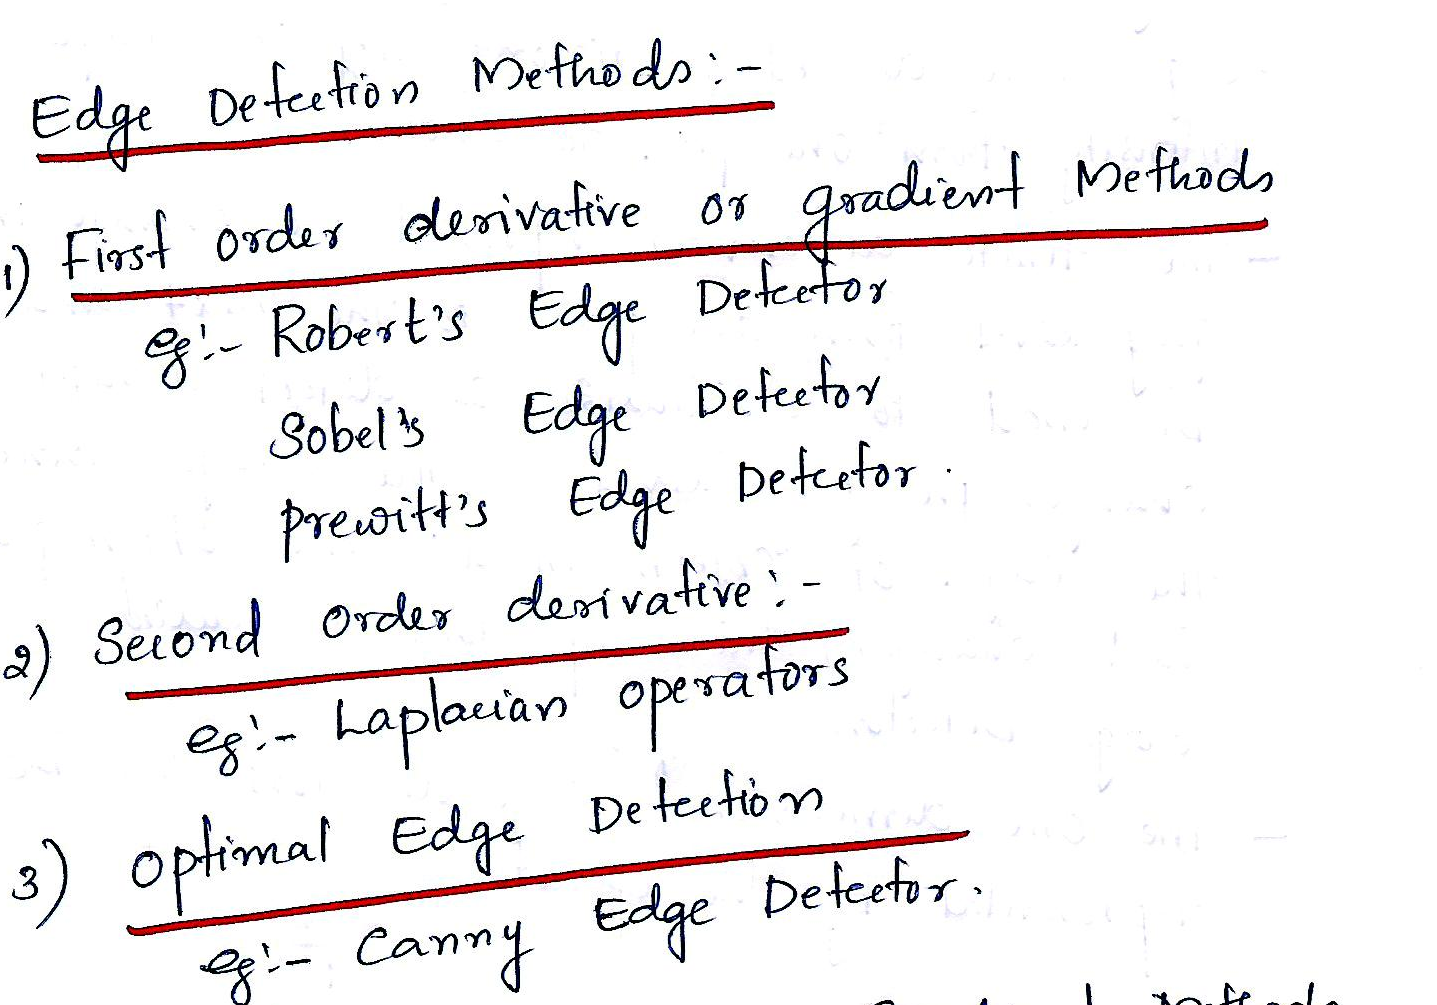 Edge Detection Methods:-
1) First order derivative or gradient Methods
eg:- Robert's Edge Detector
Sobel's Edge Detector
prewitt's Edge Detector.
2) Second order derivative:-
eg:- Laplacian operators
3) optimal Edge Detection
eg:- Canny Edge Detector.